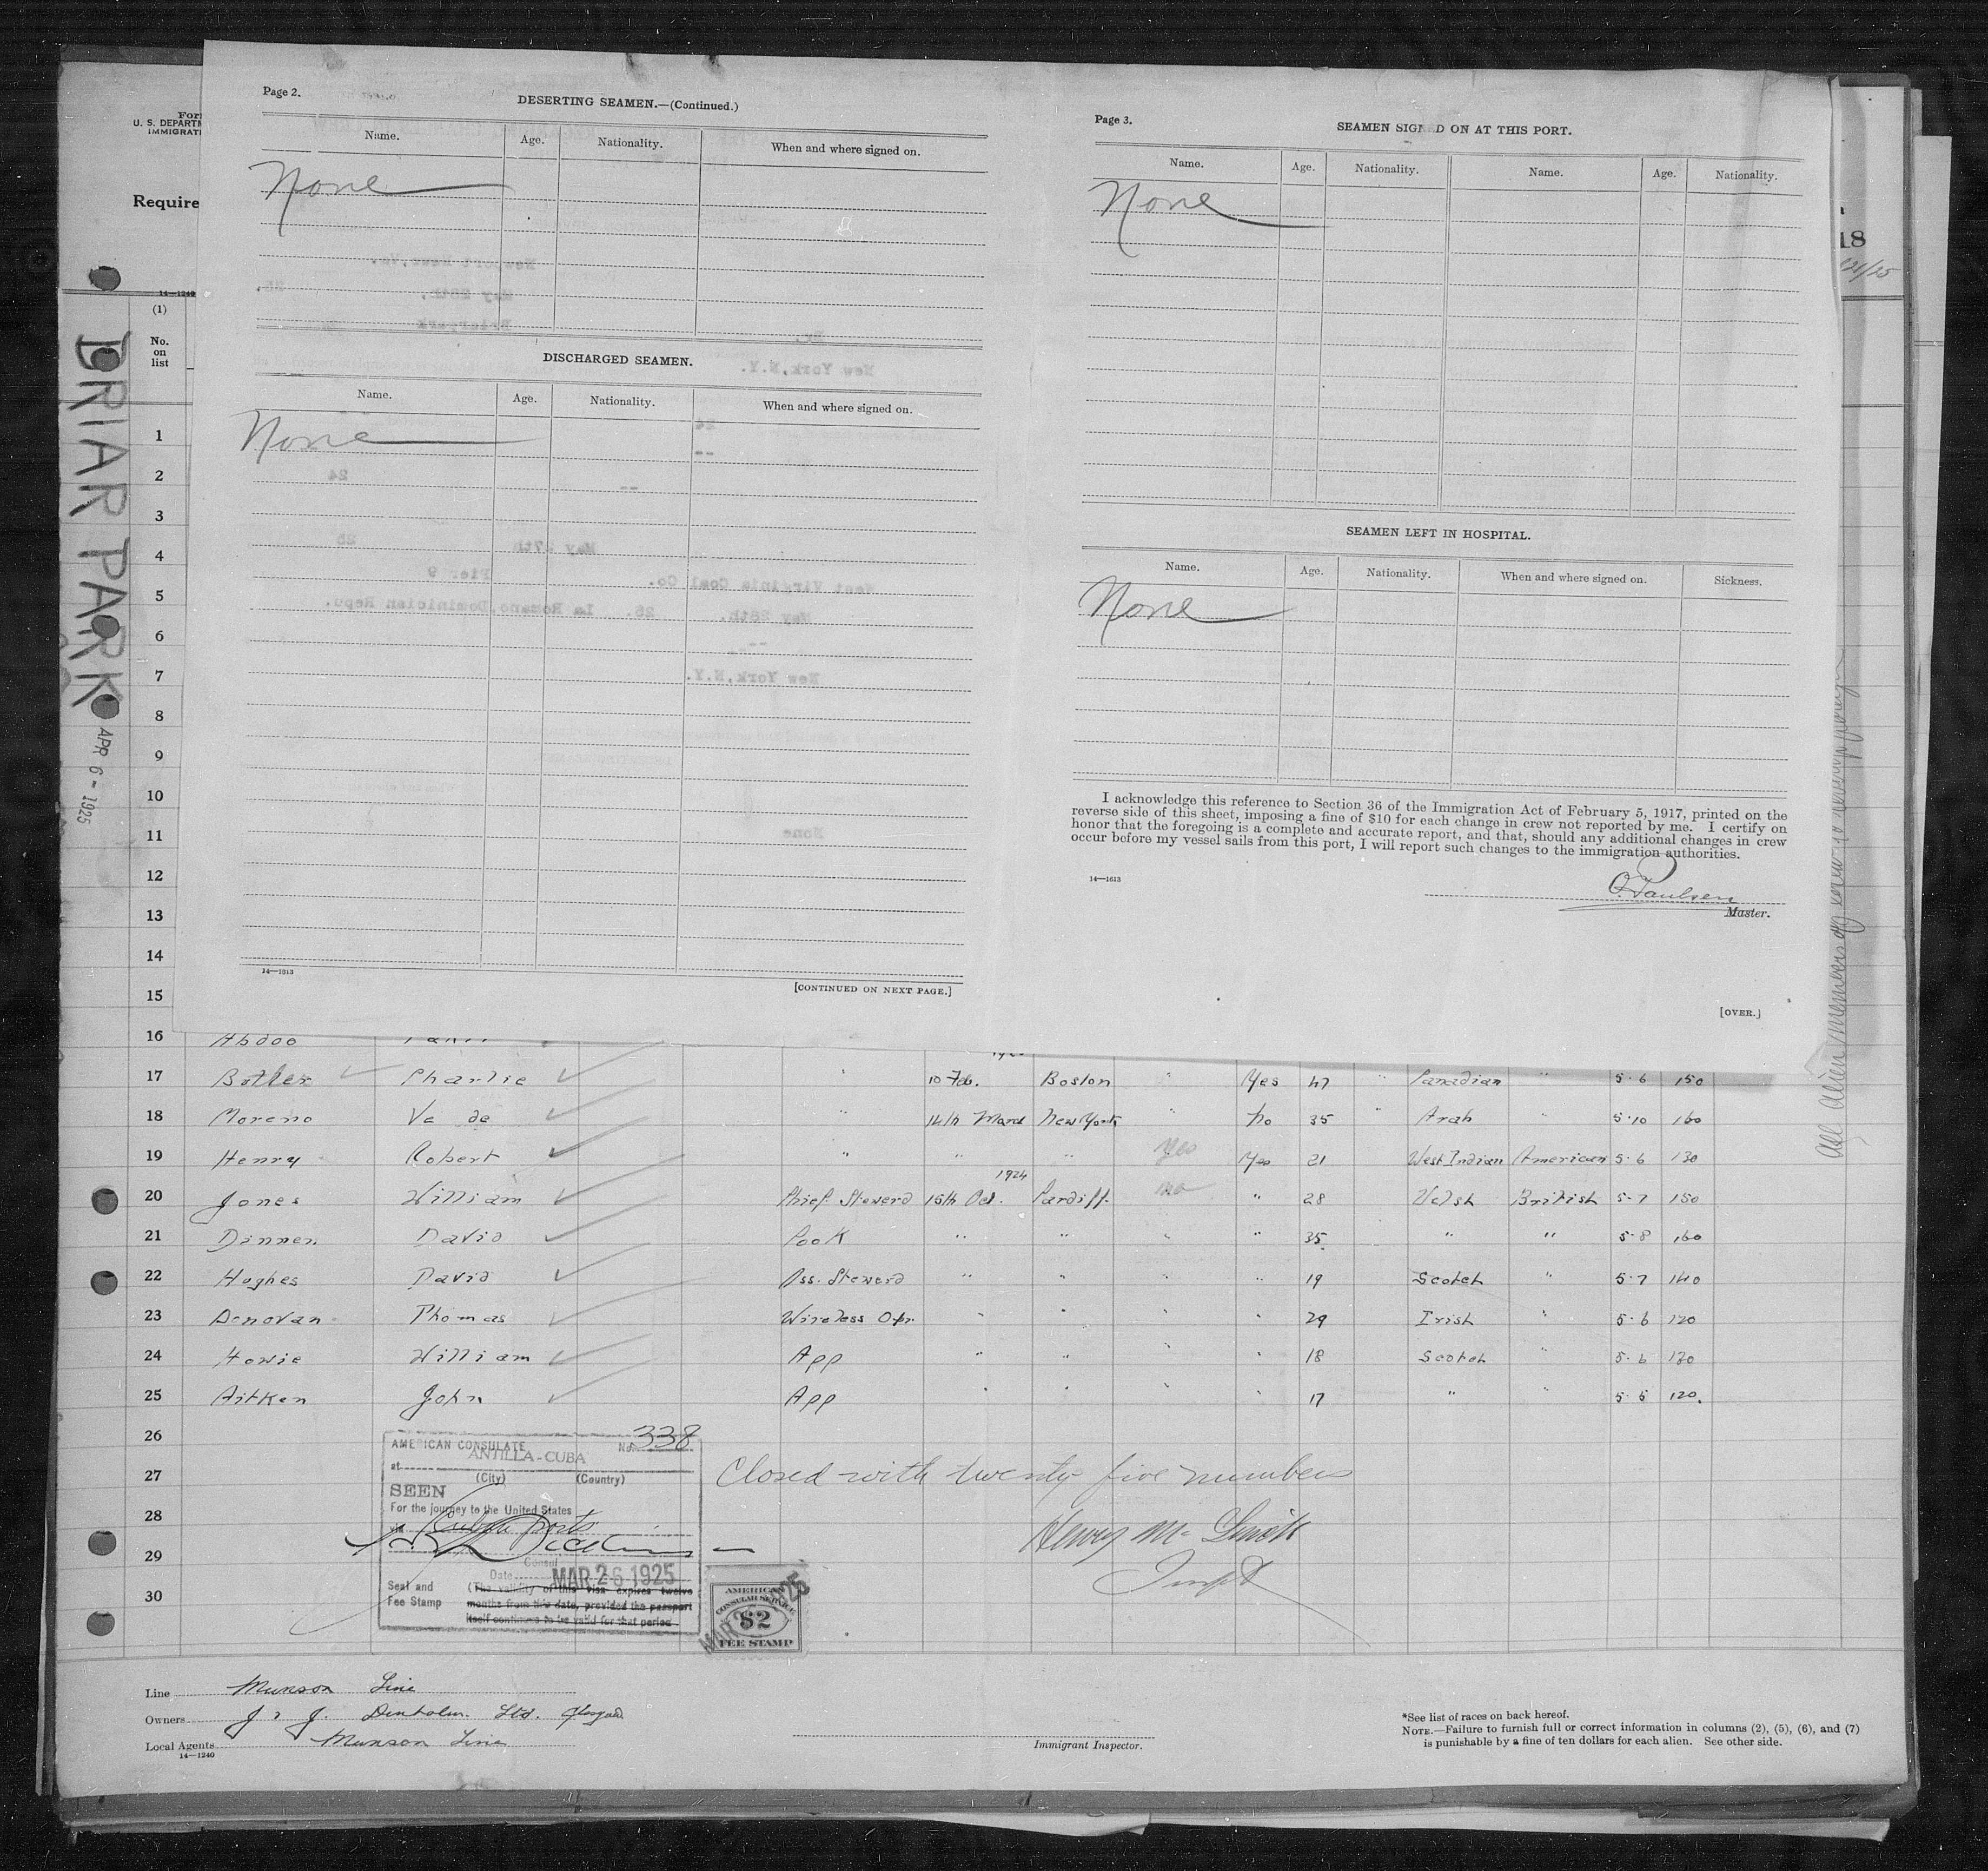 Page 2.
DESERTING SEAMEN.—(Continued.)
Name. Age. Nationality. When and where signed on.
None
DISCHARGED SEAMEN.
Name. Age. Nationality. When and where signed on.
None
14—1613
[CONTINUED ON NEXT PAGE.]
Page 3.
SEAMEN SIGNED ON AT THIS PORT.
Name. Age. Nationality. Name. Age. Nationality.
None
SEAMEN LEFT IN HOSPITAL.
Name. Age. Nationality. When and where signed on. Sickness.
None
I acknowledge this reference to Section 36 of the Immigration Act of February 5, 1917, printed on the
reverse side of this sheet, imposing a fine of $10 for each change in crew not reported by me. I certify on
honor that the foregoing is a complete and accurate report, and that, should any additional changes in crew
occur before my vessel sails from this port, I will report such changes to the immigration authorities.
14—1613
O. Paulsen
Master.
[OVER.]
Form
U. S. DEPARTM
IMMIGRATI
Require
14—1240
(1)
No.
on
list
BRIAR PARK
APR 6 - 1925
18
1
2
3
4
5
6
7
8
9
10
11
12
13
14
15
16 Abdoo
17 Butler Charlie " 10 Feb. Boston " Yes 47 " Canadian " 5·6 150
18 Moreno " 14th March New York no 35 " Arab " 5·10 160
19 Henry Robert " " " Yes Yes 21 West Indian American 5·6 130
1924
20 Jones William Chief Steward 15th Oct. Cardiff no " 28 Welsh British 5·7 150
21 Dinnen David Cook " " " " 35 " " 5·8 160
22 Hughes David Ass. Steward " " " " 19 Scotch " 5·7 140
23 Donovan Thomas Wireless Opr. " " " " 29 Irish " 5·6 120
24 Howie William App " " " " 18 Scotch " 5·6 130
25 Aitken John App " " " " 17 " " 5·5 120.
26
27 Closed with twenty five numbers
28
29
30
AMERICAN CONSULATE No. 338
at ANTILLA-CUBA
(City) (Country)
SEEN
For the journey to the United States
via Cuban ports
Consul
Date MAR 26 1925
Seal and
Fee Stamp
(The validity of this visa expires twelve
months from this date, provided the passport
itself continues to be valid for that period.
AMERICAN
CONSULAR SERVICE
$2
FEE STAMP
Henry Mc
Inspt
Line Munson Line
Owners J. & J. Denholm Ltd. Glasgow
Local Agents Munson Line
14—1240
Immigrant Inspector.
*See list of races on back hereof.
NOTE.—Failure to furnish full or correct information in columns (2), (5), (6), and (7)
is punishable by a fine of ten dollars for each alien. See other side.